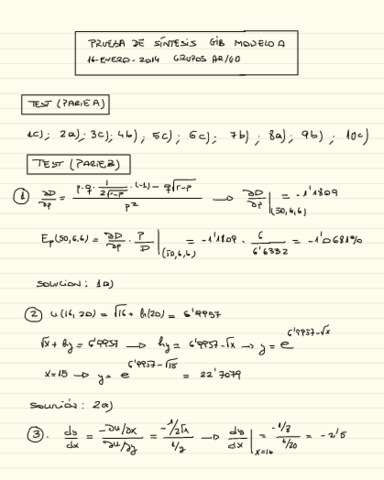 PRUEBA DE SÍNTESIS GIB MODELO A
16-ENERO-2014 GRUPOS AR/40
TEST (PARTE A)
1c); 2a); 3c); 4b), 5c); 6c); 7b); 8a); 9b), 10c)
TEST (PARTE B)
① ∂D/∂p = (p·q· 1/(2√r-p) ·(-1) - q√r-p)/p² → ∂D/∂p |(50,6,6) = -1'1809
Ep(50,6,6) = ∂D/∂p · P/D |(50,6,6) = -1'1809 · 6/6'6332 = -1'0681%
SOLUCIÓN: 1a)
② u(16,20) = √16 + ln(20) = 6'9957
√x + lny = 6'9957 → lny = 6'9957-√x → y = e^(6'9957-√x)
x=15 → y = e^(6'9957-√15) = 22'7079
SOLUCIÓN: 2a)
③. dy/dx = (-∂u/∂x)/(∂u/∂y) = (-1/2√x)/(1/y) → dy/dx |x=16 = (-1/8)/(1/20) = -2'5